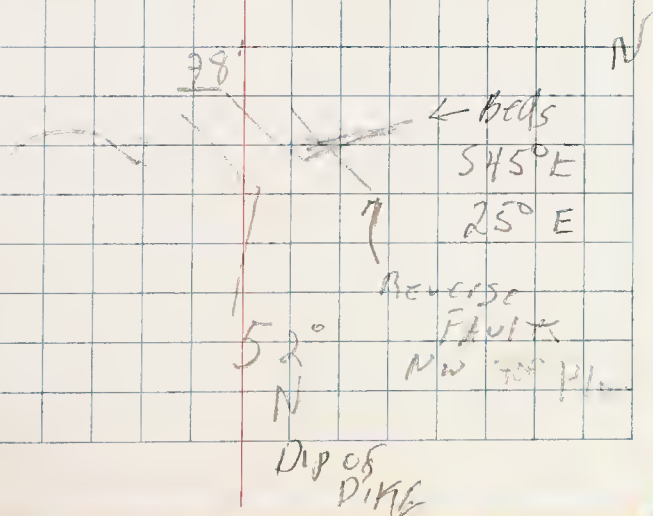 N
38'
← Beds
S45°E
25° E
Reverse
Fault
NW
52°
N
Dip of
DIKE